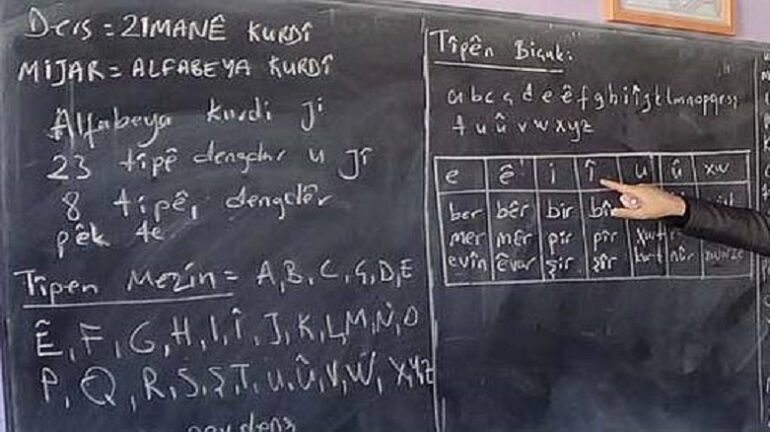 Ders = ZIMANÊ KURDÎ
MIJAR = ALFABEYA KURDÎ
Alfabeya kurdi ji
23 tîpê dengdar u Jî
8 tîpê, dengdêr
pêk tê
Tîpen Mezin = A, B, C, Ç, D, E
Ê, F, G, H, I, Î, J, K, L, M, N, O
P, Q, R, S, Ş, T, U, Û, V, W, X, Y, Z
Tîpên Biçuk:
a b c ç d e ê f g h i î j k l m n o p q r s ş
t u û v w x y z
e ê i î u û xw
ber bêr bir bîr
mer mêr pir pîr
evîn êvar şir şîr kurt nûr